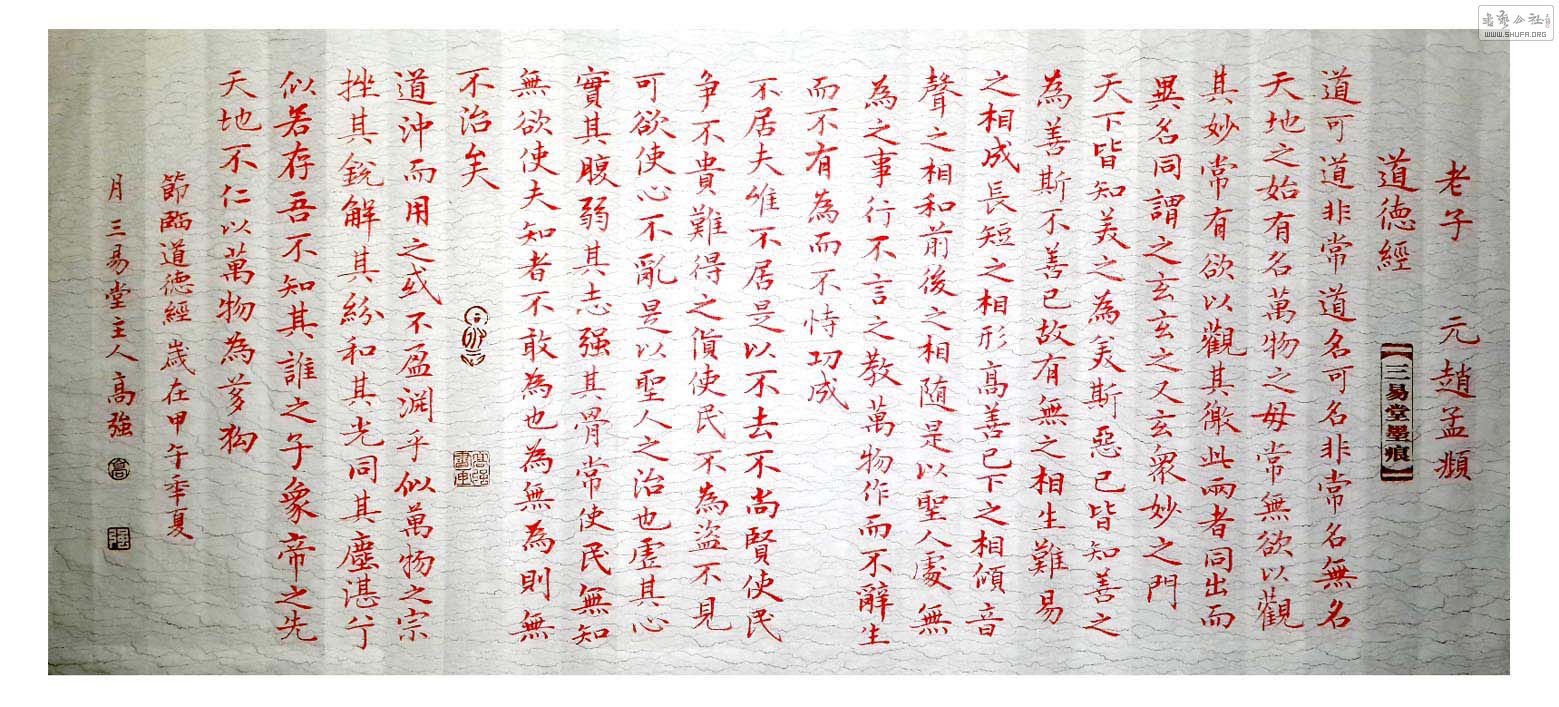 老子 元趙孟頫
道德經
【三易堂墨痕】
道可道非常道名可名非常名無名
天地之始有名萬物之母常無欲以觀
其妙常有欲以觀其徼此兩者同出而
異名同謂之玄玄之又玄衆妙之門
天下皆知美之為美斯惡已皆知善之
為善斯不善已故有無之相生難易
之相成長短之相形高善已下之相傾音
聲之相和前後之相隨是以聖人處無
為之事行不言之教萬物作而不辭生
而不有為而不恃功成
不居夫唯不居是以不去不尚賢使民
爭不貴難得之貨使民不為盜不見
可欲使心不亂是以聖人之治也虛其心
實其腹弱其志强其骨常使民無知
無欲使夫知者不敢為也為無為則無
不治矣
道沖而用之或不盈淵乎似萬物之宗
挫其銳解其紛和其光同其塵湛兮
似若存吾不知其誰之子象帝之先
天地不仁以萬物為芻狗
節臨道德經歲在甲午季夏
月三易堂主人高強
高
强
書藝公社
WWW.SHUFA.ORG